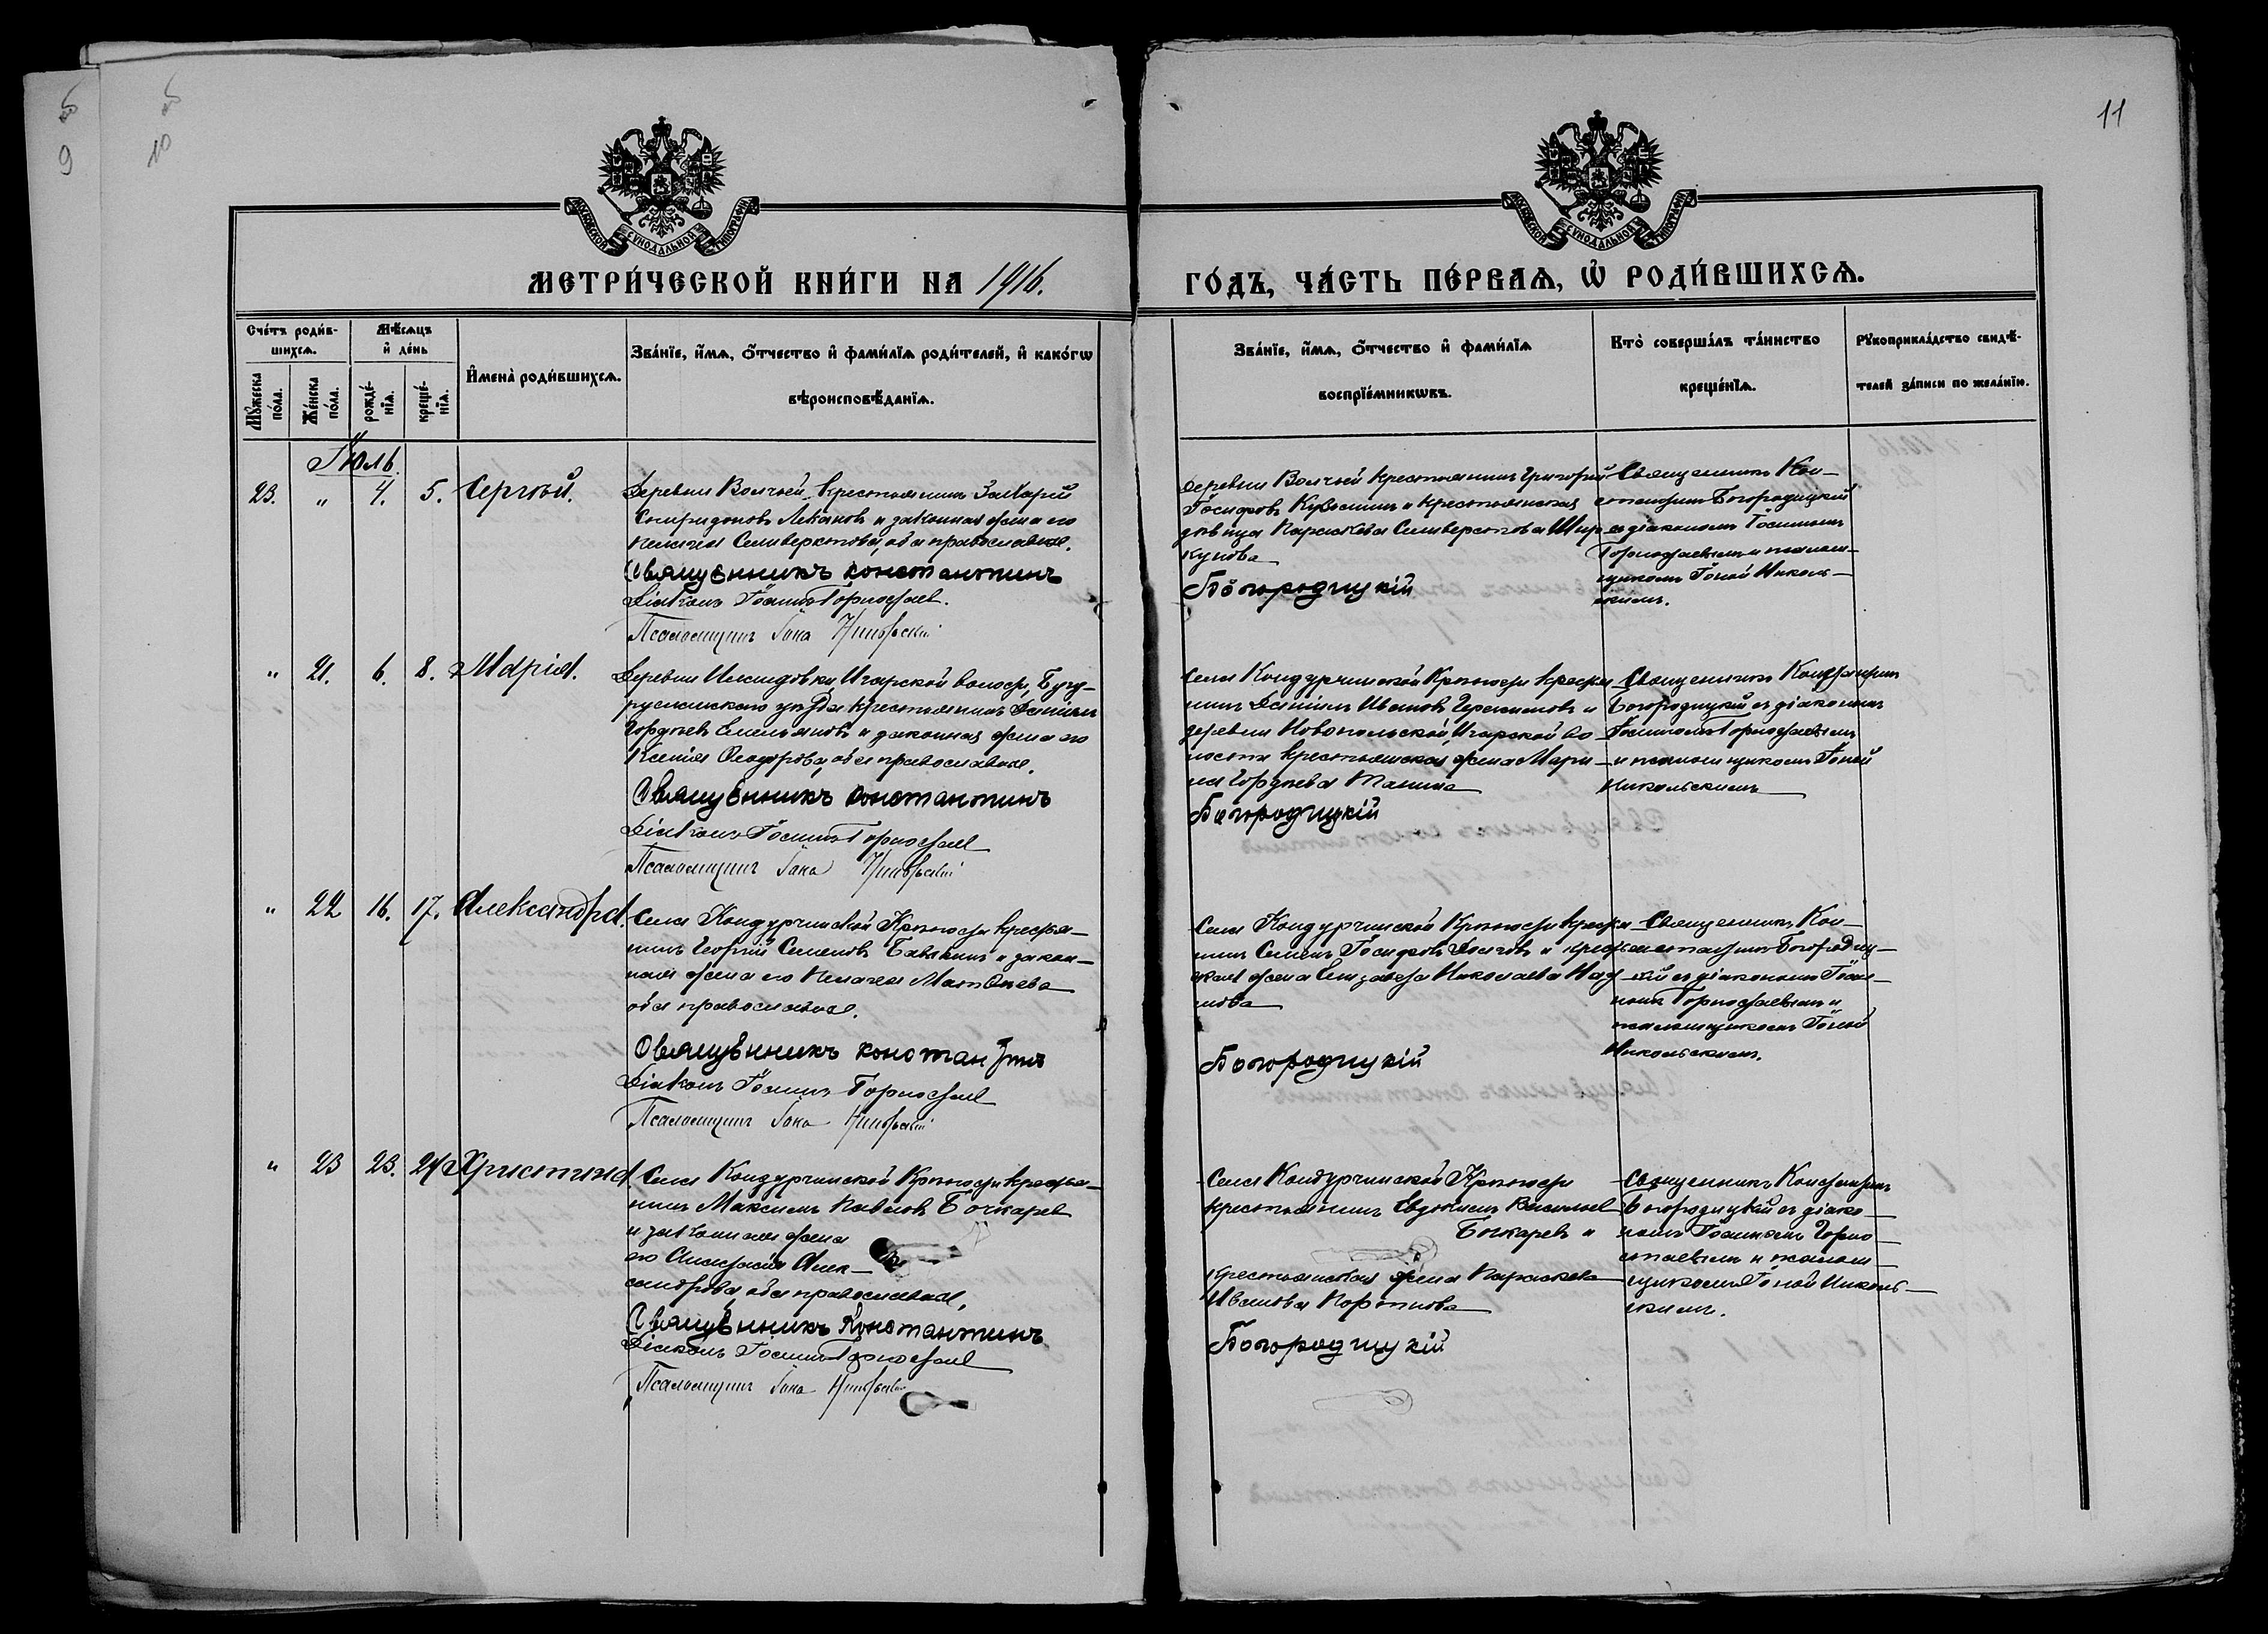 11
9
10
МОСКОВСКОЙ СУНОДАЛЬНОЙ ТИПОГРАФІИ
МОСКОВСКОЙ СУНОДАЛЬНОЙ ТИПОГРАФІИ
МЕТРИ́ЧЕСКОЙ КНИ́ГИ НА 1916.
ГО́ДЪ, ЧА́СТЬ ПЕ́РВАѦ, Ѽ РОДИ́ВШИХСѦ.
Сче́тъ роди́в-
шихсѧ.
Мѣ́сѧцъ
и҆ де́нь
Мꙋ́жеска по́ла.
Же́нска по́ла.
рожде́-нїѧ.
креще́-нїѧ.
И҆мена̀ роди́вшихсѧ.
Зва́нїе, и҆́мѧ, ѻ҆́тчество и҆ фами́лїѧ роди́телей, и҆ како́гѡ
вѣроисповѣ́данїѧ.
Зва́нїе, и҆́мѧ, ѻ҆́тчество и҆ фами́лїѧ
воспрїе́мникѡвъ.
Кто̀ соверша́лъ та́инство
креще́нїѧ.
Рꙋкоприкла́дство свидѣ́-
телей за́писи по жела́нїю.
Іюль
23. " 4. 5. Сергѣй.
Деревни Волчьей крестьянинъ Захарій
Спиридоновъ Лекановъ и законная жена его
Пелагея Селиверстова, оба православные.
Священникъ Константинъ
Діаконъ Іоаннъ Горностаев
Псаломщикъ Іона Никольскій
деревни Волчьей крестьянинъ Григорій
Іосифовъ и крестьянская
дѣвица Параскева Селиверстова Шир-
кунова
Богородицкій
Священникъ Кон-
стантинъ Богородицкій
съ діакономъ Іоанномъ
Горностаевымъ и псалом-
щикомъ Іоной Николь-
скимъ.
" 21. 6. 8. Марія.
Деревни Игарской волости, Бугу-
русланскаго уѣзда крестьянинъ
Гордѣевъ Емельяновъ и законная жена его
Ксенія Ѳеодорова, оба православные.
Священникъ Константинъ
Діаконъ Іоаннъ Горностаев
Псаломщикъ Іона Никольскій
Села Кондурчинской Крѣпости кресть-
нинъ Ивановъ и
деревни Новопольской, Игарской во-
лости крестьянская жена Мари-
на Гордѣева
Богородицкій
Священникъ Константинъ
Богородицкій съ діакономъ
Іоанномъ Горностаевымъ
и псаломщикомъ Іоной
Никольскимъ
" 22 16. 17. Александра.
Села Кондурчинской Крѣпости крестья-
нинъ Георгій Семеновъ Бавыкинъ и закон-
ная жена его Пелагея Матѳеева
оба православные.
Священникъ Константинъ
Діаконъ Іоаннъ Горностаев
Псаломщикъ Іона Никольскій
Села Кондурчинской Крѣпости кресть-
нинъ Семенъ Іосифовъ и крестьян-
ская жена Елизавета Николаева
Богородицкій
Священникъ Кон-
стантинъ Богородиц-
кій съ діакономъ Іоан-
номъ Горностаевымъ и
псаломщикомъ Іоной
Никольскимъ.
" 23 23. 24 Христина
Села Кондурчинской Крѣпости крестья-
нинъ Максимъ Павловъ Бочкарев
и законная жена
его Анастасія Алек-
сандрова, оба православные,
Священникъ Константинъ
Діаконъ Іоаннъ Горностаев
Псаломщикъ Іона Никольскій
Села Кондурчинской Крѣпости
крестьянинъ Евдокимъ
Бочкаревъ и
крестьянская жена Параскева
Иванова
Богородицкій
Священникъ Константинъ
Богородицкій съ діако-
номъ Іоанномъ Горно-
стаевымъ и псалом-
щикомъ Іоной Николь-
скимъ.